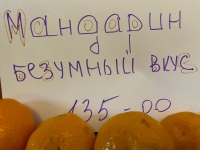 Мандарин
БЕЗУМНЫЙ ВКУС
135-00